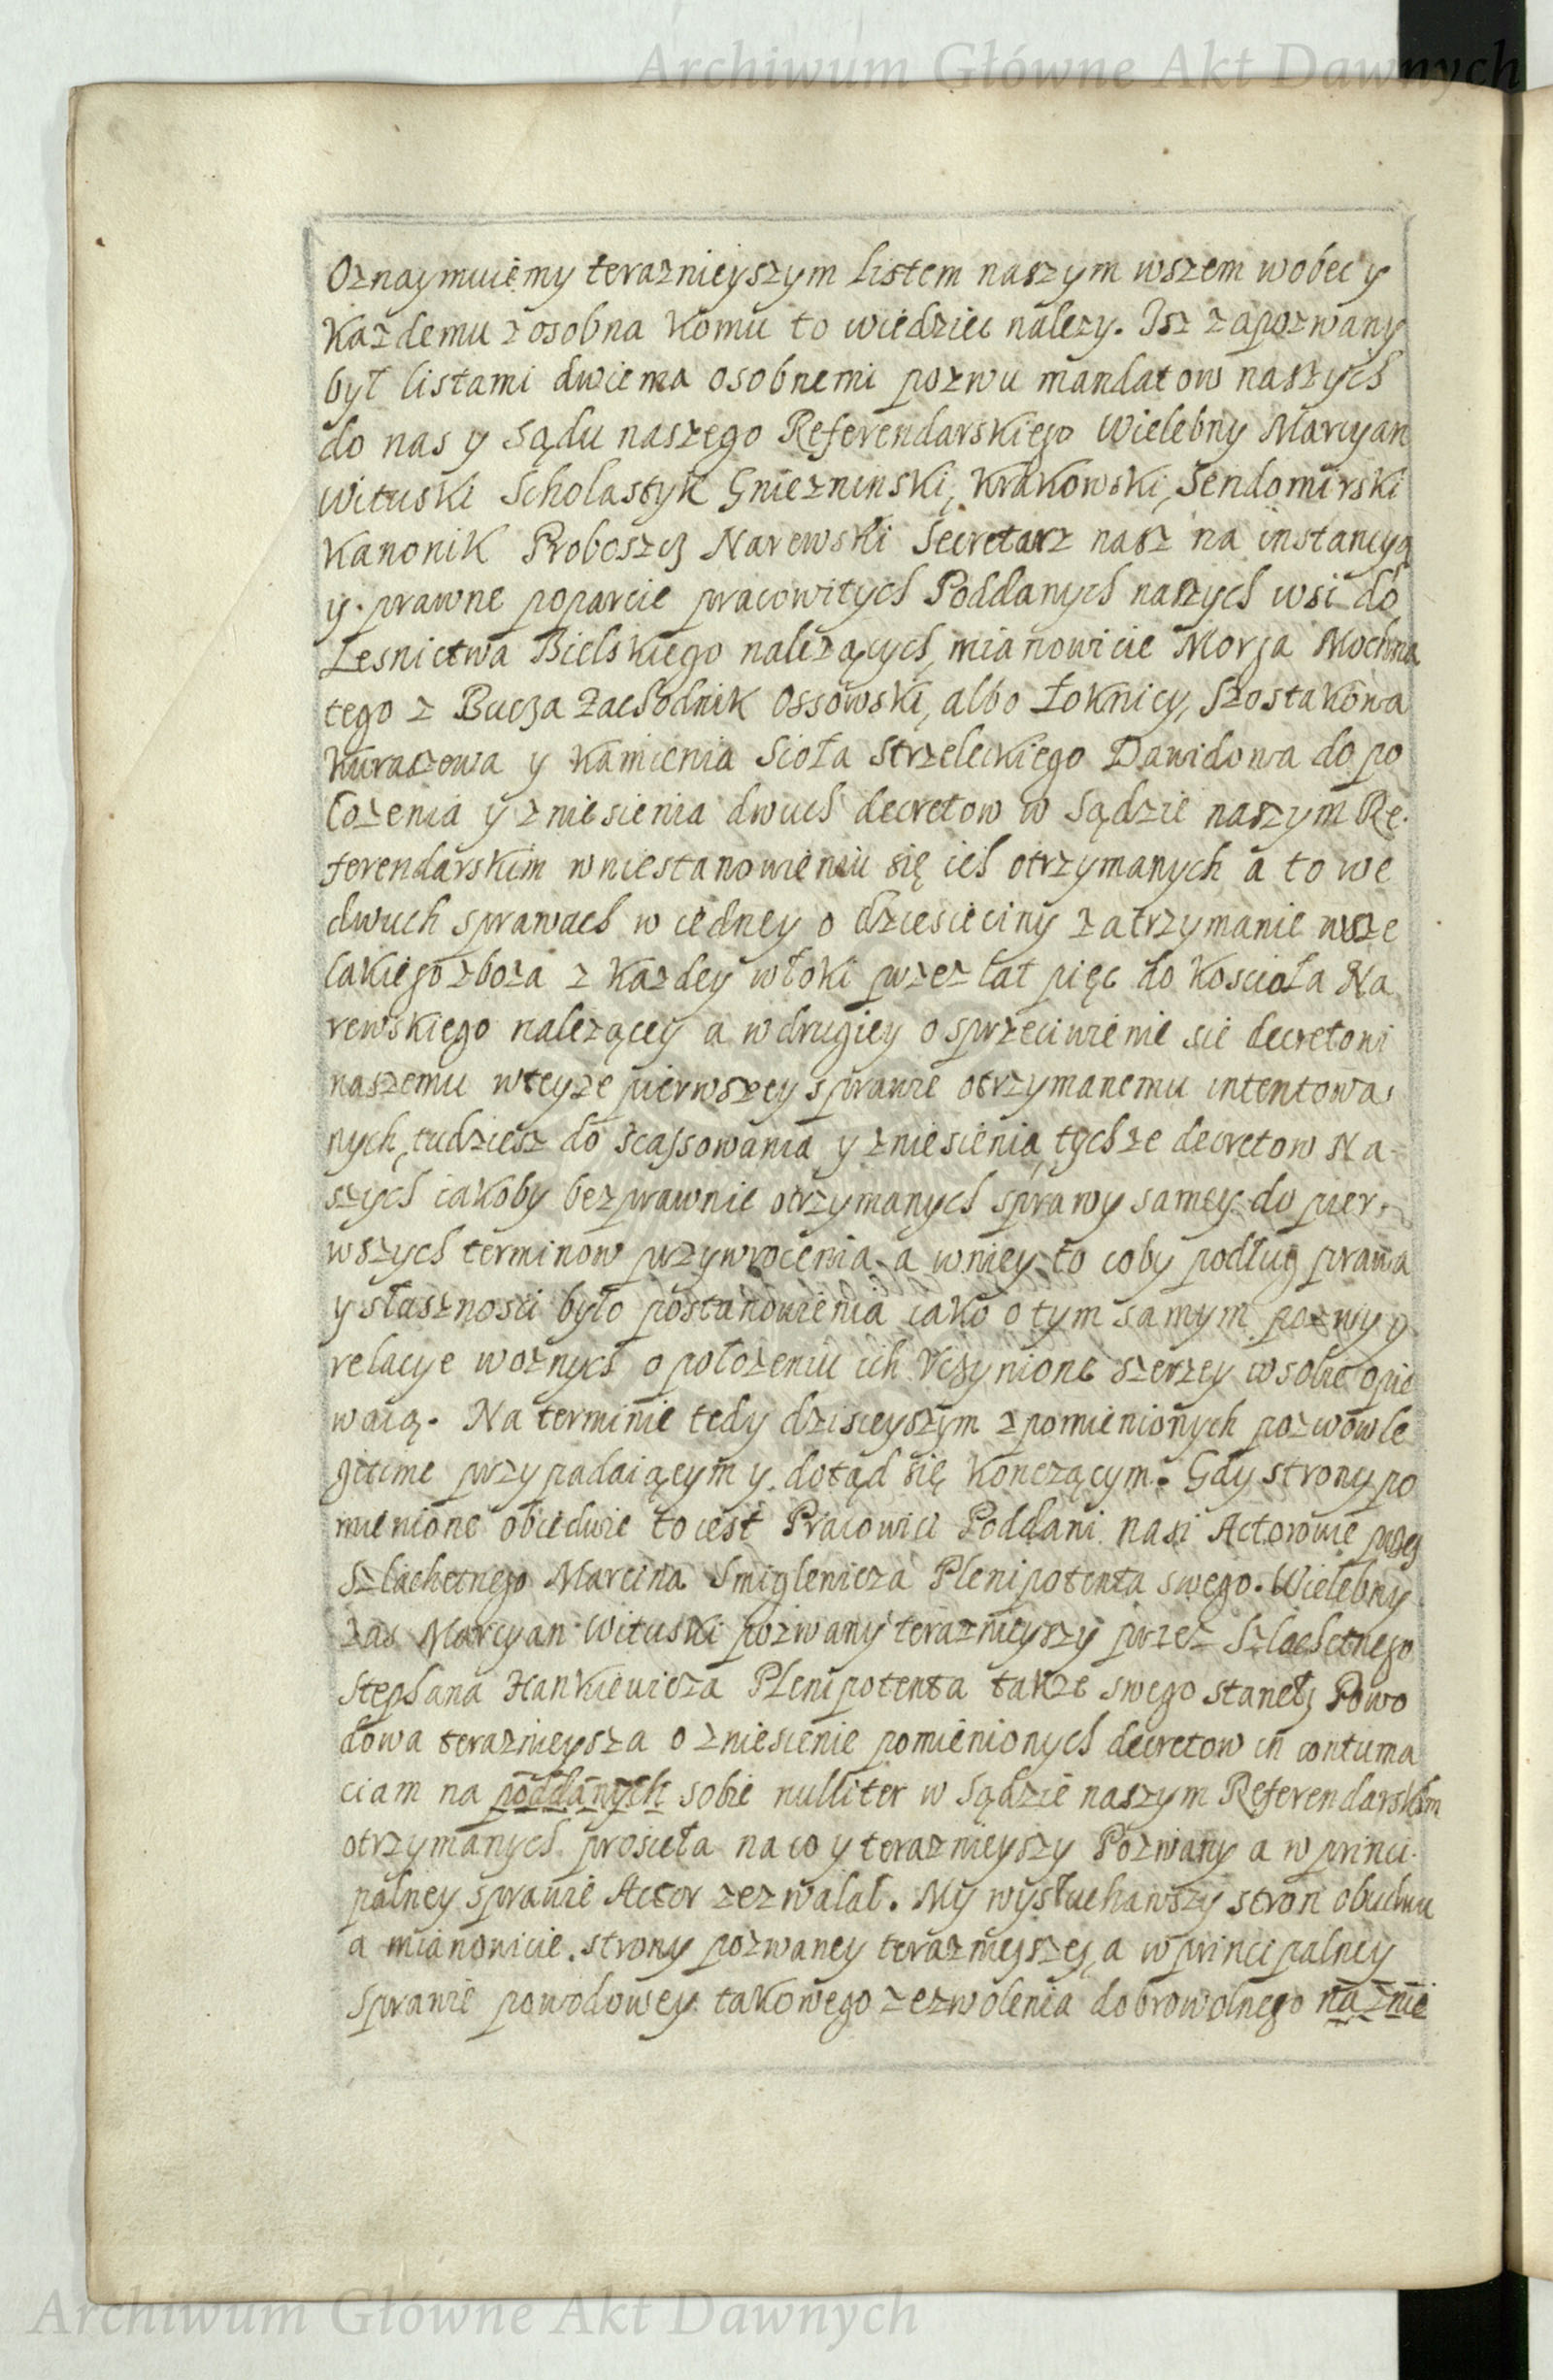 Archiwum Główne Akt Dawnych
Oznaymuiemy teraznieyszym Listem naszym wszem wobec y
Kazdemu zosobna Komu to wiedziec nalezy. Isz zapozwany
był listami dwiema osobnemi pozwu mandatow naszych
do nas y Sądu naszego Referendarskiego Wielebny Marcyan
Wituski Scholastyk Gnieznınski, Krakowski, Sendomirski
Kanonik Proboszcz Narewski Secretarz nasz na instancyą
y prawne poparcie pracowitych Poddanych naszych wsi do
Lesnictwa Bielskiego nalezących, mianowicie Morza Mochna
tego z Bucza Zachodnik Ossowski, albo Łoknicy, Szostakowa
Kuraszowa y Kamienia Sioła Strzeleckiego Dawidowa do po
lozenia y zniesienia dwuch decretow w Sądzie naszym Re
ferendarskim wniestanowieniu się ich otrzymanych a to we
dwuch sprawach w iedney o dziesieciny zatrzymanie wsze
lakiego zboza z Kazdey włoki przez lat pięc do Koscioła Na
rewskiego nalezącey a wdrugiey o sprzeciwienie sie decretowi
naszemu wteyze pierwszey sprawie otrzymanemu intentowa,
nych, tudziesz do scassowania y zniesienia tychze decretow Na-
szych iakoby bezprawnie otrzymanych sprawy samey do pier,
wszych terminow przywrocenia a wniey to coby podług prawa
y słusznosci było postanowienia iako o tym samym pozwy y
relacye woznych o połozeniu ich Vczynione szerzey wsobie opie
waią. Na terminie tedy dzisieyszym z pomienionych pozwow le
gitime przypadaiącym y dotąd się Konczącym. Gdy strony po
mienione obiedwie to iest Pracowici Poddani nasi Actorowie przez
Szlachetnego Marcina Smiglewicza Plenipotenta swego. Wielebny
zas Marcyan Wituski pozwany teraznieyszy przez Szlachetnego
Stephana Hankiewicza Plenipotenta takze swego staneły Powo
dowa teraznieysza o zniesienie pomienionych decretow in contuma
ciam na poddanych sobie nulliter w Sądzie naszym Referendarskim
otrzymanych prosieła na co y teraznieyszy Pozwany a w princi
palney sprawie Actor zezwalał. My wysłuchawszy stron obudwu
a mianowicie strony pozwaney teraznieyszey, a w principalney
sprawie powodowey takowego zezwolenia dobrowolnego na znie
Archiwum Główne Akt Dawnych